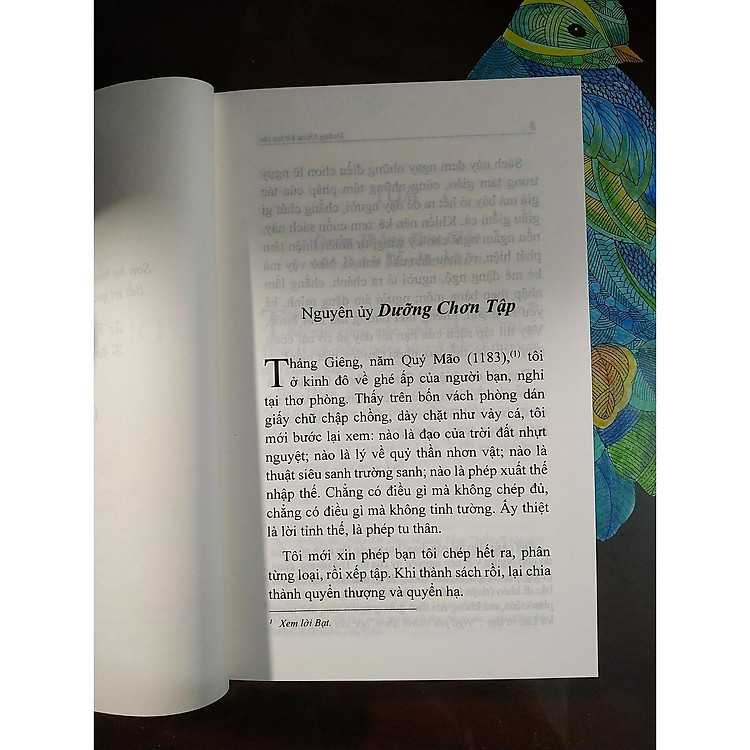 Nguyên ủy Dưỡng Chơn Tập
Tháng Giêng, năm Quý Mão (1183),(1) tôi
ở kinh đô về ghé ấp của người bạn, nghỉ
tại thơ phòng. Thấy trên bốn vách phòng dán
giấy chữ chập chồng, dày chặt như vảy cá, tôi
mới bước lại xem: nào là đạo của trời đất nhựt
nguyệt; nào là lý về quỷ thần nhơn vật; nào là
thuật siêu sanh trường sanh; nào là phép xuất thế
nhập thế. Chẳng có điều gì mà không chép đủ,
chẳng có điều gì mà không tinh tường. Ấy thiệt
là lời tỉnh thế, là phép tu thân.
Tôi mới xin phép bạn tôi chép hết ra, phân
từng loại, rồi xếp tập. Khi thành sách rồi, lại chia
thành quyển thượng và quyển hạ.
1 Xem lời Bạt.